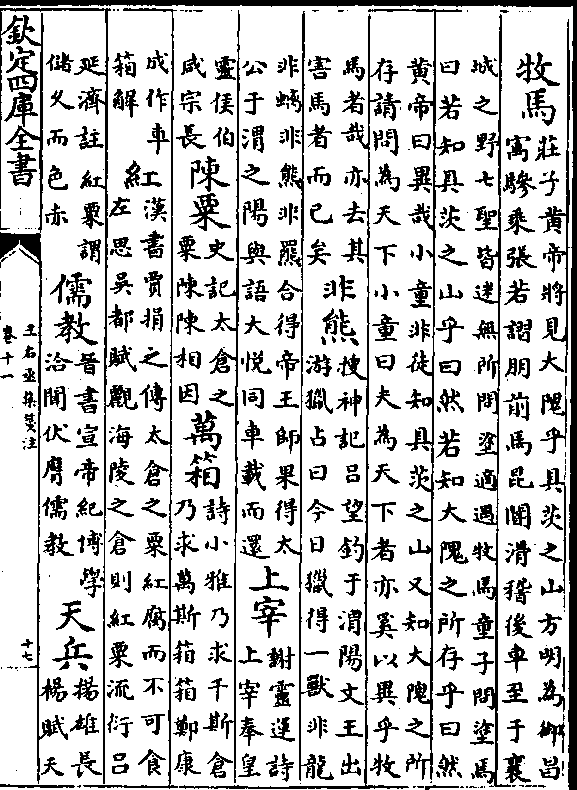 牧馬
莊子黄帝將見大隗乎具茨之山方明為御昌
寓驂乘張若謵朋前馬昆閽滑稽後車至于襄
城之野七聖皆迷無所問塗適遇牧馬童子問塗馬
曰若知具茨之山乎曰然若知大隗之所存乎曰然
黄帝曰異哉小童非徒知具茨之山又知大隗之所
存請問為天下小童曰夫為天下者亦奚以異乎牧
馬者哉亦去其
害馬者而已矣
非熊
搜神記吕望釣于渭陽文王出
游獵占曰今日獵得一獸非龍
非螭非熊非羆合得帝王師果得太
公于渭之陽與語大悦同車載而還
上宰
謝靈運詩
上宰奉皇
靈侯伯
咸宗長
陳粟
史記太倉之
粟陳陳相因
萬箱
詩小雅乃求千斯倉
乃求萬斯箱箱鄭康
成作車
箱解
紅
漢書賈捐之傳太倉之粟紅腐而不可食
左思吳都賦觀海陵之倉則紅粟流衍吕
延濟註紅粟謂
儲久而色赤
儒教
晉書宣帝紀博學
洽聞伏膺儒教
天兵
揚雄長
楊賦天
欽定四庫全書
王右丞集箋注
卷十一
十七